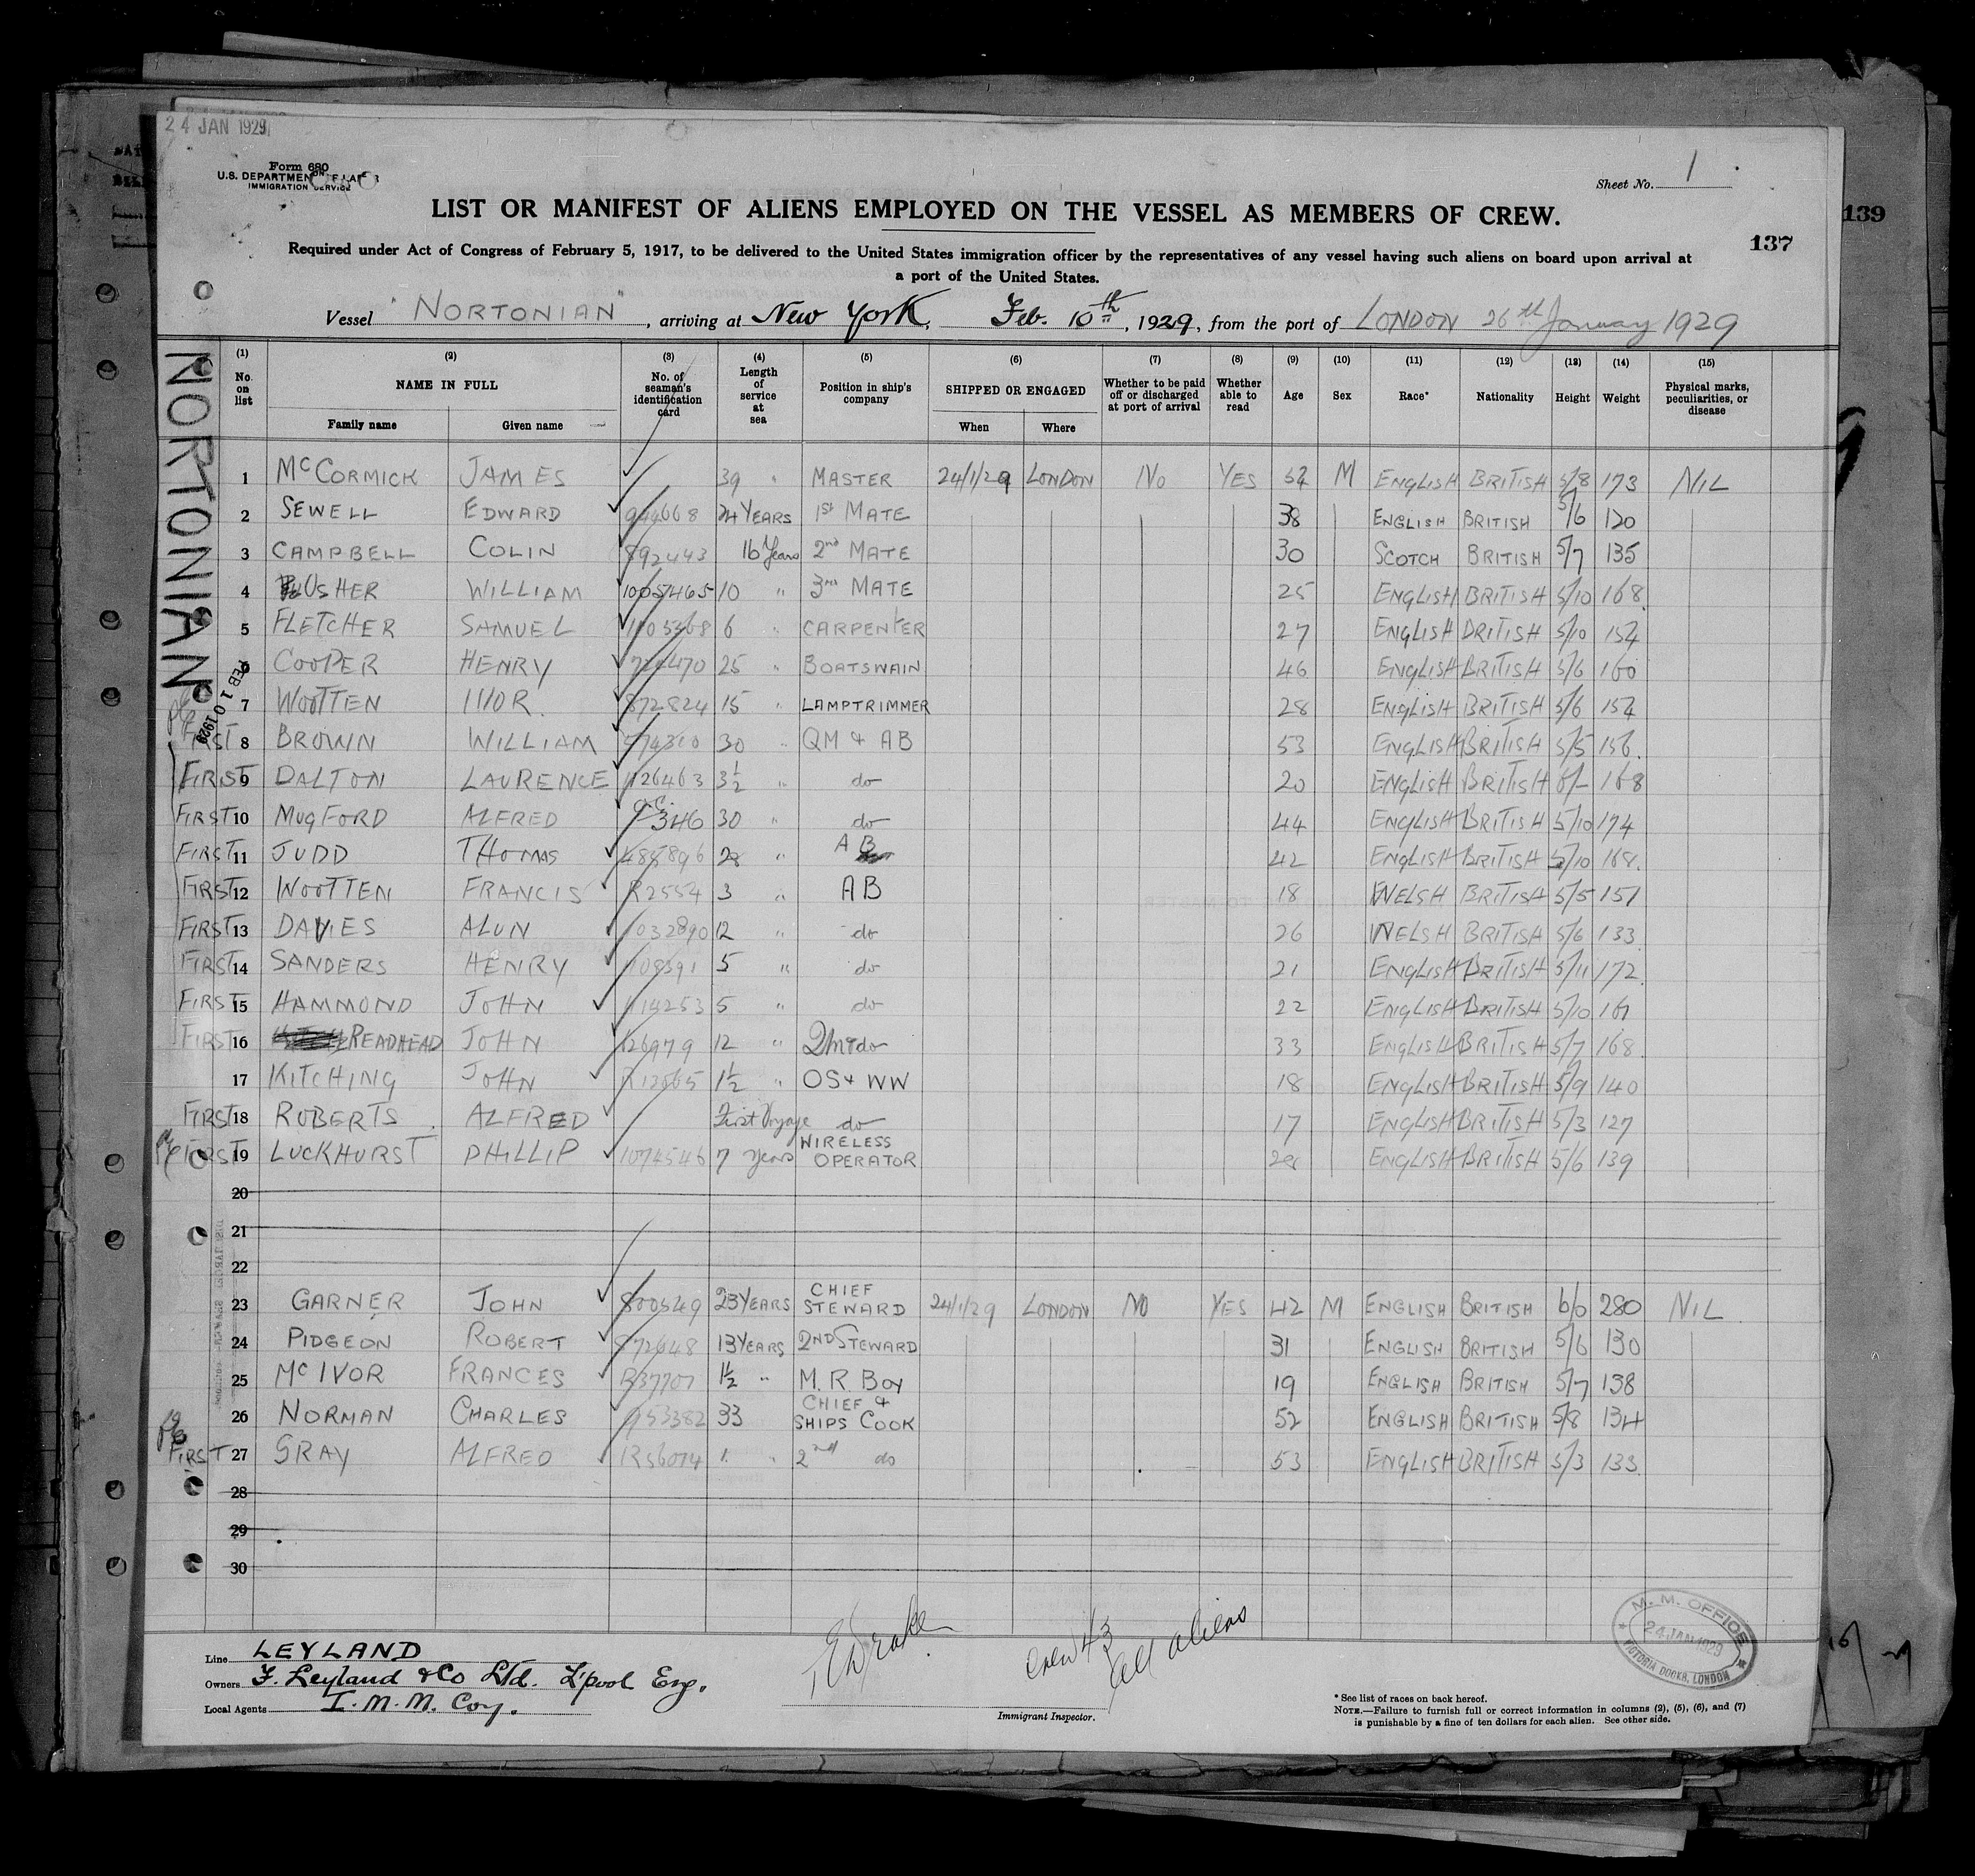 24 JAN 1929
Form 680
U.S. DEPARTMENT OF LABOR
IMMIGRATION SERVICE
Sheet No. 1
LIST OR MANIFEST OF ALIENS EMPLOYED ON THE VESSEL AS MEMBERS OF CREW.
139
137
Required under Act of Congress of February 5, 1917, to be delivered to the United States immigration officer by the representatives of any vessel having such aliens on board upon arrival at
a port of the United States.
Vessel "NORTONIAN", arriving at New York, Feb. 10th, 1929, from the port of LONDON 26th January 1929
NORTONIAN
FEB 10 1929
(1) (2) (3) (4) (5) (6) (7) (8) (9) (10) (11) (12) (13) (14) (15)
No. on list NAME IN FULL No. of seaman's identification card Length of service at sea Position in ship's company SHIPPED OR ENGAGED Whether to be paid off or discharged at port of arrival Whether able to read Age Sex Race* Nationality Height Weight Physical marks, peculiarities, or disease
Family name Given name When Where
1 McCORMICK JAMES 39 " MASTER 24/1/29 LONDON NO YES 52 M ENGLISH BRITISH 5/8 173 NIL
2 SEWELL EDWARD 944668 24 YEARS 1st MATE 38 ENGLISH BRITISH 5/6 120
3 CAMPBELL COLIN 892443 16 Years 2nd MATE 30 SCOTCH BRITISH 5/7 135
4 USHER WILLIAM 1005465 10 " 3rd MATE 25 ENGLISH BRITISH 5/10 168
5 FLETCHER SAMUEL 1105368 6 " CARPENTER 27 ENGLISH BRITISH 5/10 154
6 COOPER HENRY 25 " BOATSWAIN 46 ENGLISH BRITISH 5/6 160
7 WOOTTEN IVOR 872824 15 " LAMPTRIMMER 28 ENGLISH BRITISH 5/6 154
FIRST 8 BROWN WILLIAM 30 " QM & AB 53 ENGLISH BRITISH 5/5 156
FIRST 9 DALTON LAURENCE 1126463 3½ " do 20 ENGLISH BRITISH 6/- 168
FIRST 10 MUGFORD ALFRED 346 30 " do 44 ENGLISH BRITISH 5/10 174
FIRST 11 JUDD THOMAS 28 " AB 42 ENGLISH BRITISH 5/10 168
FIRST 12 WOOTTEN FRANCIS R2554 3 " AB 18 WELSH BRITISH 5/5 151
FIRST 13 DAVIES ALUN 1032890 12 " do 26 WELSH BRITISH 5/6 133
FIRST 14 SANDERS HENRY 1108391 5 " do 21 ENGLISH BRITISH 5/11 172
FIRST 15 HAMMOND JOHN 1114253 5 " do 22 ENGLISH BRITISH 5/10 161
FIRST 16 READHEAD JOHN 126979 12 " QM & do 33 ENGLISH BRITISH 5/7 168
17 KITCHING JOHN 1½ " OS & WW 18 ENGLISH BRITISH 5/9 140
FIRST 18 ROBERTS ALFRED First Voyage do 17 ENGLISH BRITISH 5/3 127
FIRST 19 LUCKHURST PHILLIP 1074546 7 years WIRELESS OPERATOR ENGLISH BRITISH 5/6 139
20
21
22
23 GARNER JOHN 800549 23 YEARS CHIEF STEWARD 24/1/29 LONDON NO YES 42 M ENGLISH BRITISH 6/0 280 NIL
24 PIDGEON ROBERT 872648 13 YEARS 2ND STEWARD 31 ENGLISH BRITISH 5/6 130
25 McIVOR FRANCES R37707 1½ " M. R. BOY 19 ENGLISH BRITISH 5/7 138
26 NORMAN CHARLES 953382 33 CHIEF & SHIPS COOK 52 ENGLISH BRITISH 5/8 134
FIRST 27 GRAY ALFRED R56074 1 " 2nd do 53 ENGLISH BRITISH 5/3 133
28
29
30
Crew 43
all aliens
M. M. OFFICE
24 JAN 1929
VICTORIA DOCKS, LONDON
Line LEYLAND
Owners F. Leyland & Co Ltd. L'pool Eng.
Local Agents I. M. M. Coy.
Immigrant Inspector.
* See list of races on back hereof.
NOTE.—Failure to furnish full or correct information in columns (2), (5), (6), and (7)
is punishable by a fine of ten dollars for each alien. See other side.